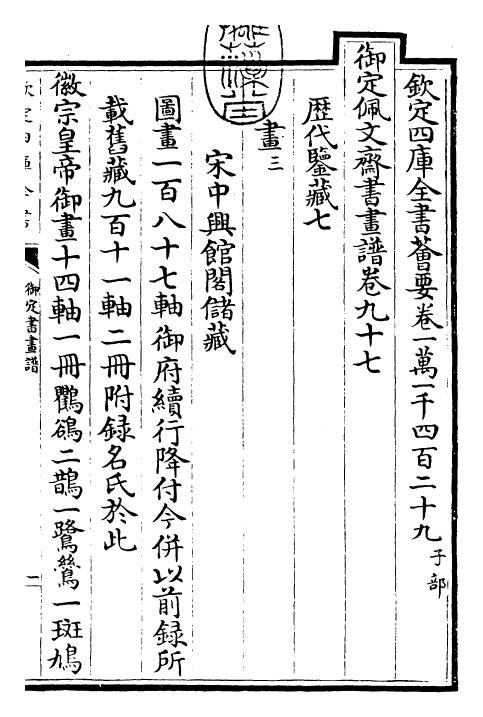 欽定四庫全書薈要卷一萬一千四百二十九子部
御定佩文齋書畫譜卷九十七
歷代鑒藏七
畫三
宋中興館閣儲藏
圖畫一百八十七軸御府續行降付今併以前録所
載舊藏九百十一軸二冊附録名氏於此
徽宗皇帝御畫十四軸一冊鸜鵒二鵲一鷺鷥一斑鳩
御定書畫譜
一